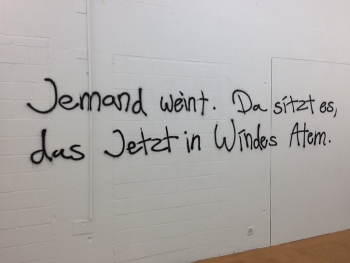 Jemand weint. Da sitzt es,
das Jetzt in Windes Atem.